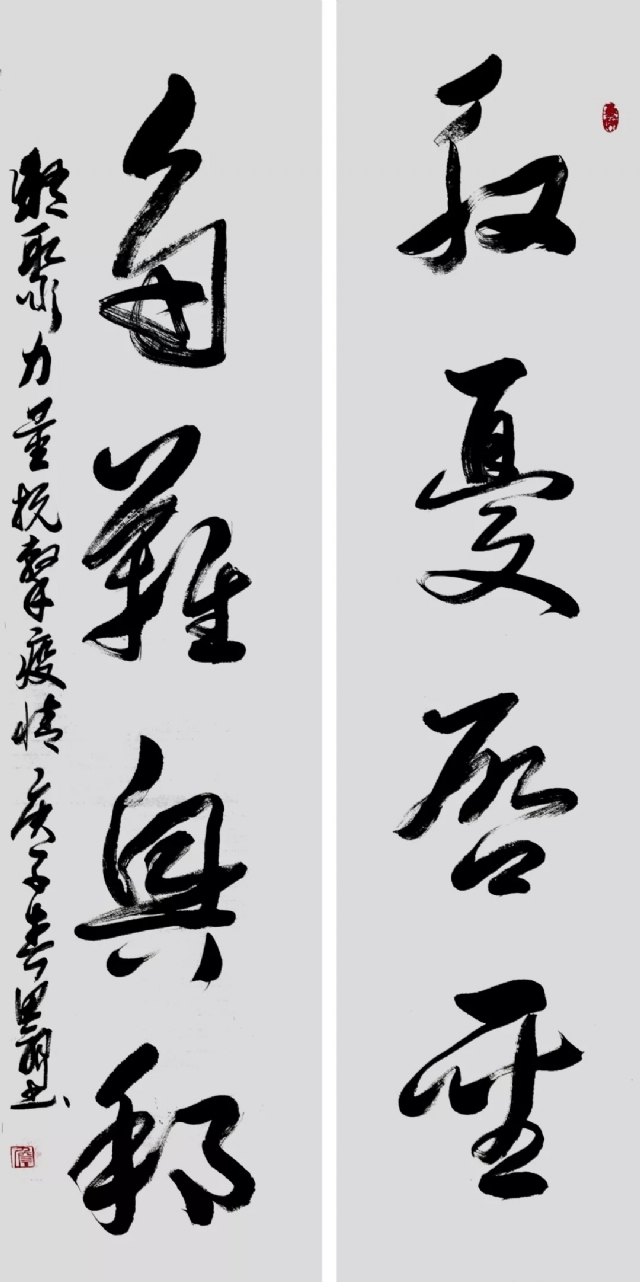 殷憂啓聖
多難興邦
凝聚力量抗擊疫情 庚子春 书